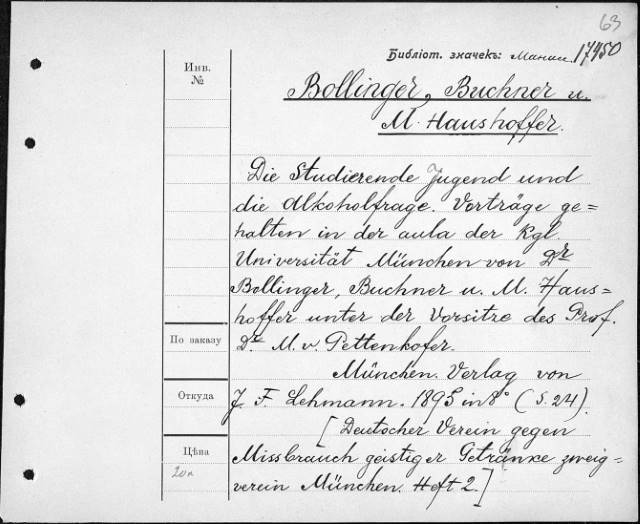 63
Библіот. значекъ: 17450
Инв.
№
Bollinger, Buchner u.
M. Haushoffer.
Die Studierende Jugend und
die Alkoholfrage. Vorträge ge=
halten in der aula der Kgl.
Universität München von Dr
Bollinger, Buchner u. M. Haus=
hoffer unter der Vorsitze des Prof.
По заказу
Dr. M. v. Pettenkofer.
München. Verlag von
Откуда
J. F. Lehmann. 1895 in 8° (S. 24).
[Deutscher Verein gegen
Цѣна
Missbrauch geistiger Getränke zweig-
verein München. Heft 2.]